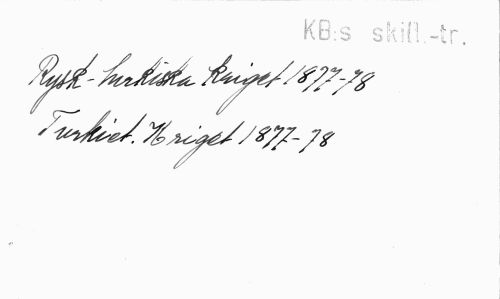 KB:s skill.-tr.
Rysk-turkiska kriget 1877-78
Turkiet. Kriget 1877-78